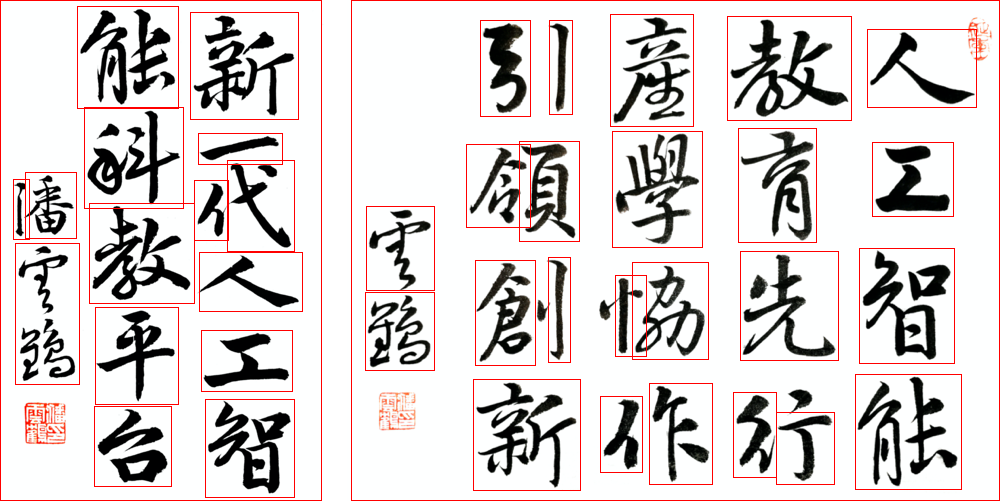 新一代人工智
能科教平台
潘雲鶴
人工智能
教育先行
產學協作
引領創新
雲鶴